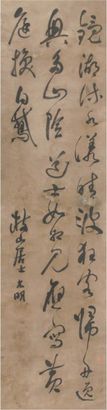 鏡湖流水漾清波狂客歸舟逸
興多山陰道士如相見應寫黃
庭換白鵝
枝山居士允明